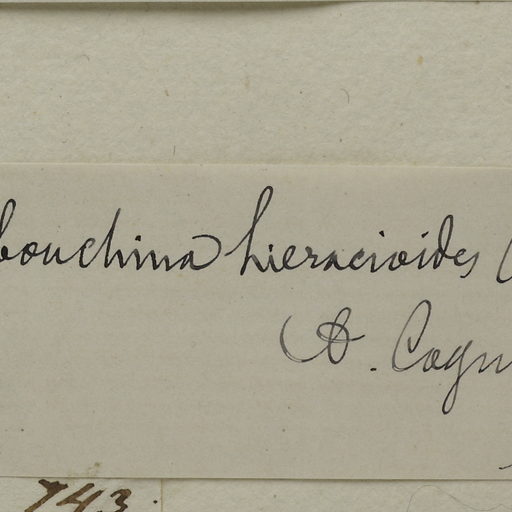 bouchina hieracioides (
A. Cogn
743.